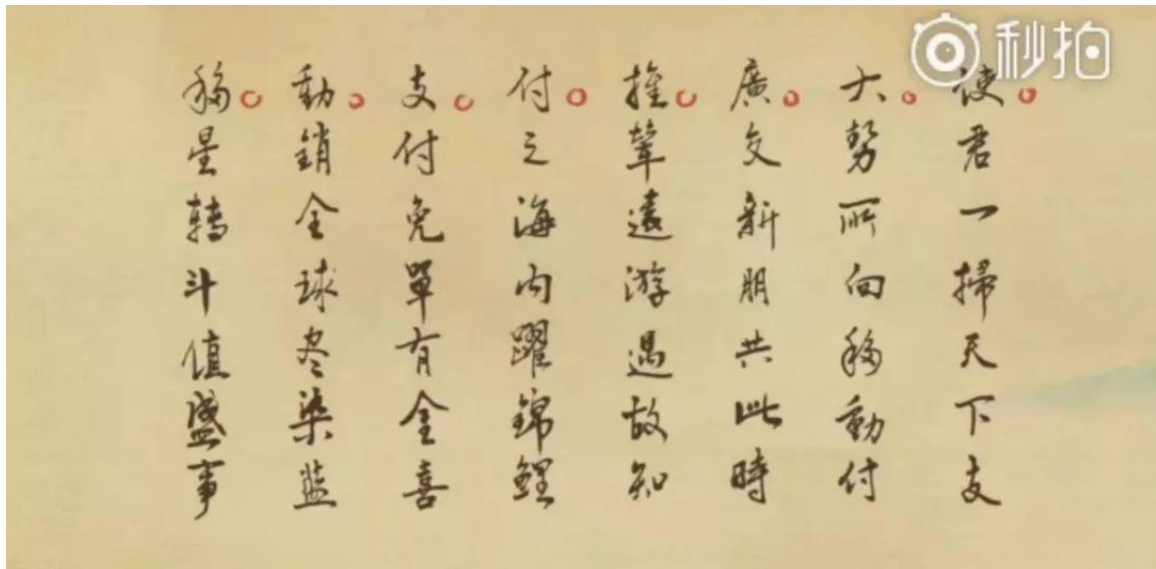 秒拍
使君一掃天下支
大勢所向移動付
廣交新朋共此時
推輦遠游遇故知
付之海内躍錦鯉
支付免單有全喜
動銷全球尽染监
移星轉斗值盛事